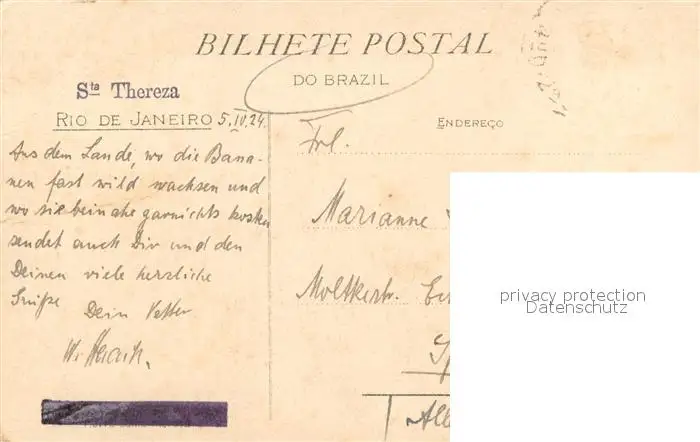 BILHETE POSTAL
DO BRAZIL
Sta Thereza
RIO DE JANEIRO 5.IV.24
ENDEREÇO
Aus dem Lande, wo die Bana-
nen fast wild wachsen und
wo sie beinahe garnichts kosten
sendet auch Dir und den
Deinen viele herzliche
Grüße Dein Vetter
W.
Frl.
Marianne
Moltkestr.
privacy protection
Datenschutz